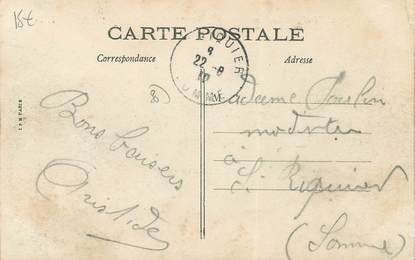 15€
CARTE POSTALE
Correspondance
Adresse
QUIER
22 -8
SOMME
80
Bons baisers
Aristide
Madame Poulin
modiste
à
St Riquier
(Somme)